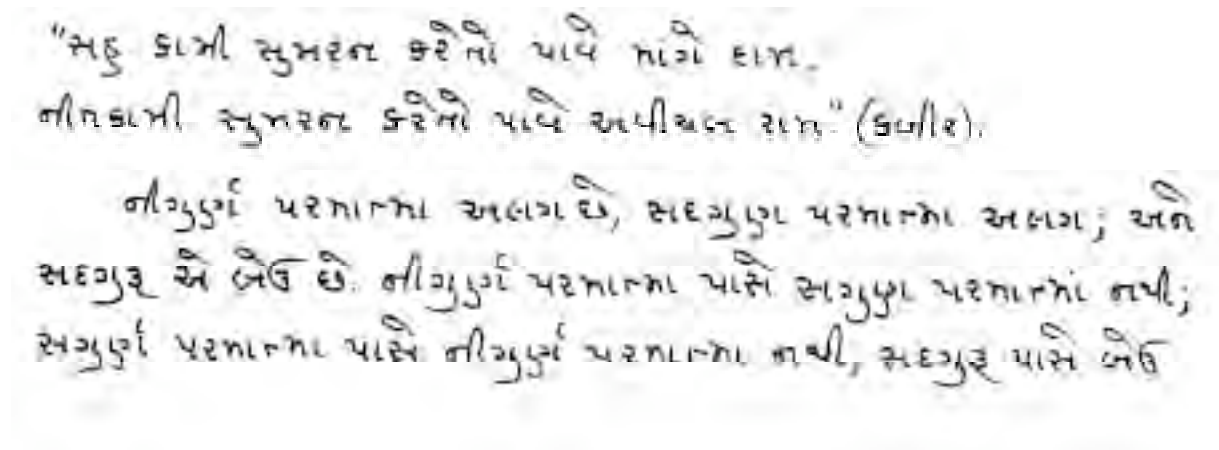 "સહુ કામી સુમરન કરેતો પાવે માંગે દામ.
નીતકામી સુમરન કરેતો પાવે અવીચલ રામ" (કબીર).
નીગુર્ણ પરમાત્મા અલગ છે, સદગુણ પરમાત્મા અલગ; અને
સદગુરૂ એ બેઉ છે. નીગુર્ણ પરમાત્મા પાસે સગુણ પરમાત્માં નથી;
સગુર્ણ પરમાત્મા પાસે નીગુર્ણ પરમાત્મા નથી, સદગુરૂ પાસે બેઉ